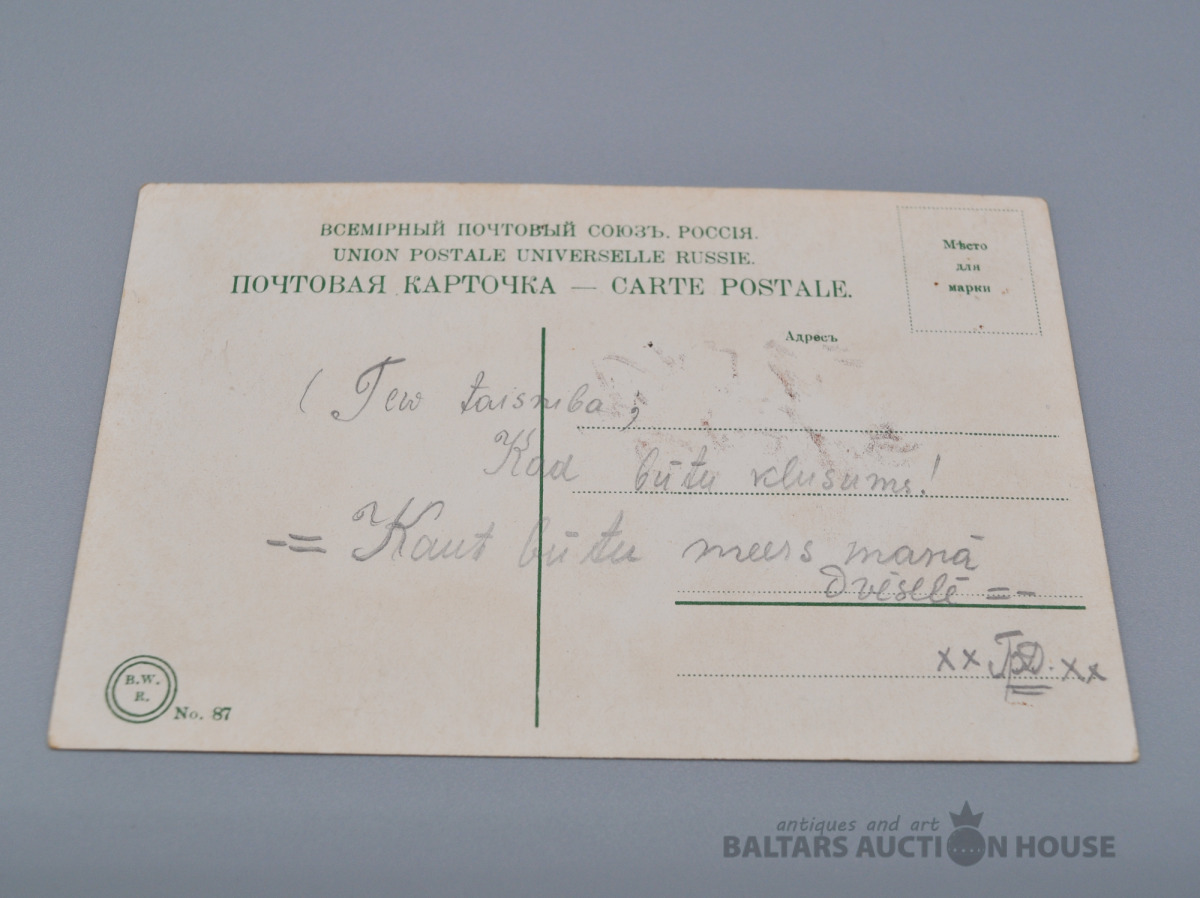 ВСЕМІРНЫЙ ПОЧТОВЫЙ СОЮЗЪ. РОССІЯ.
UNION POSTALE UNIVERSELLE RUSSIE.
ПОЧТОВАЯ КАРТОЧКА — CARTE POSTALE.
Мѣсто
для
марки
Адресъ
( Tew taisniba,
Kad būtu klusums!
-= Kaut būtu meers manā
dvēselē =-
xx xx
B.W.
R.
No. 87
antiques and art
BALTARS AUCTION HOUSE